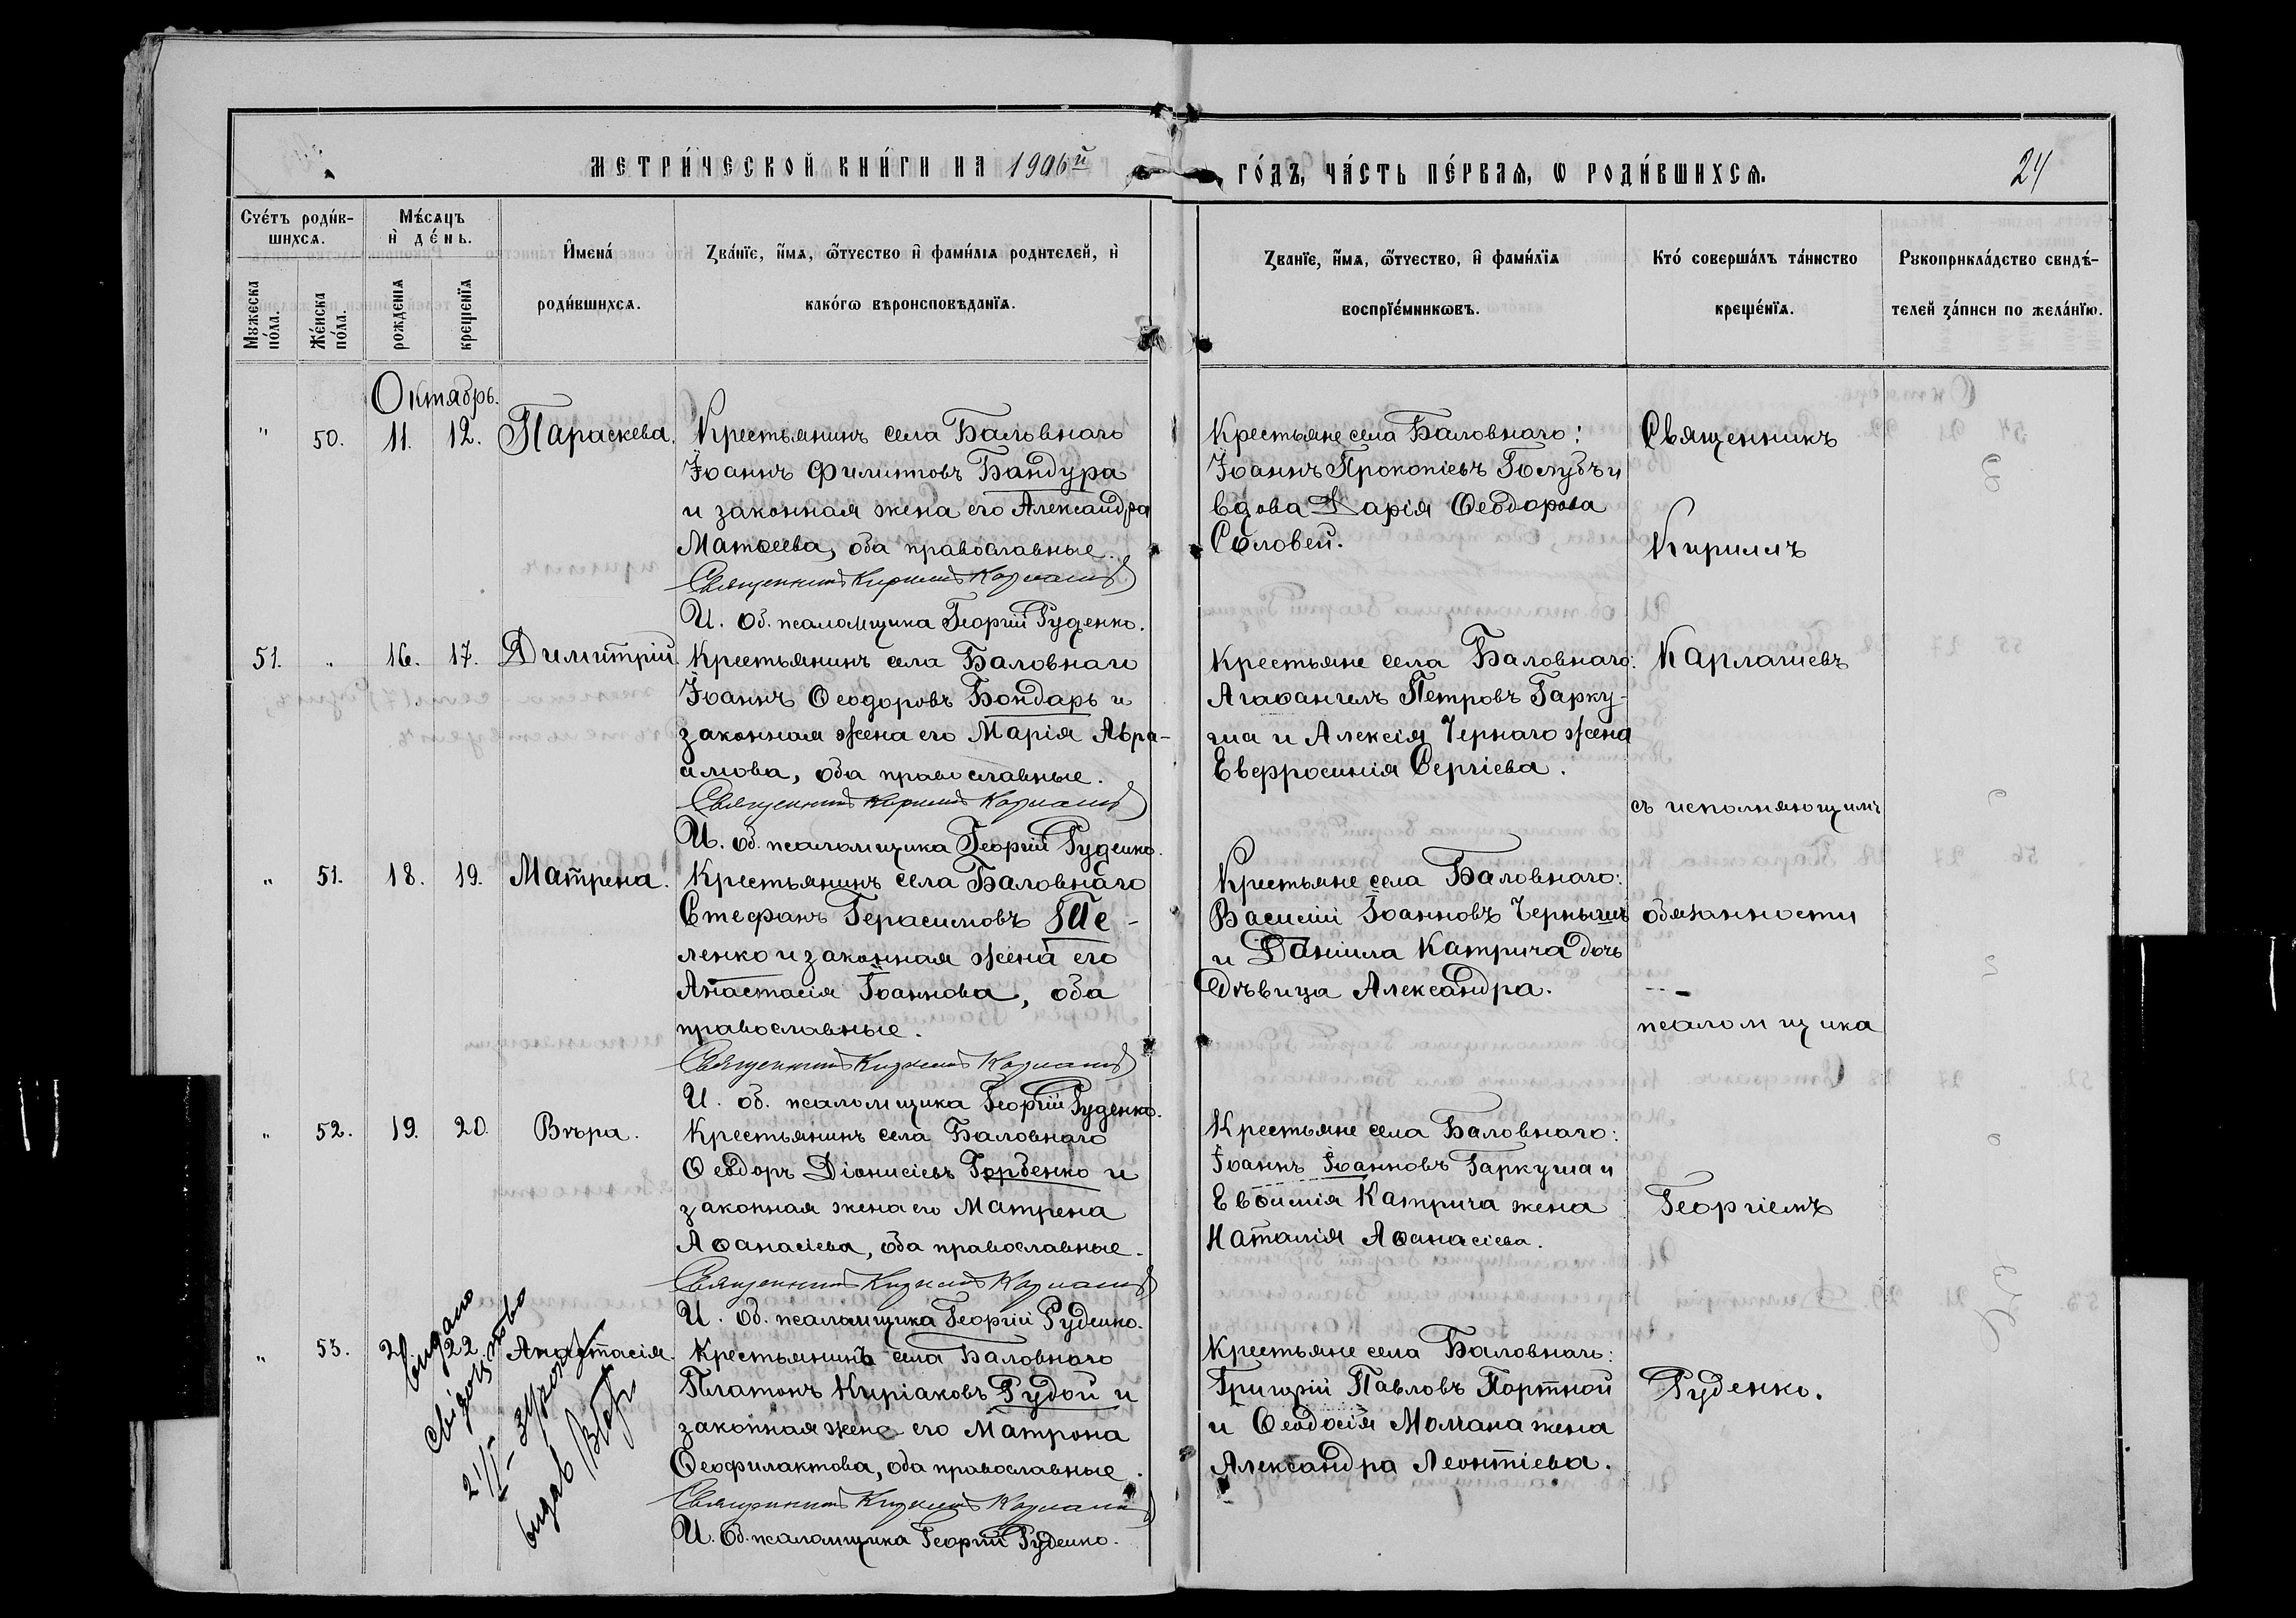 МЕТРИ́ЧЕСКОЙ КНИ́ГИ НА 1906й
ГО́ДЪ, ЧА́СТЬ ПЕ́РВАѦ, Ѡ РОДИ́ВШИХСѦ.
24
Сче́тъ роди́в-
шихсѧ.
Мѣ́сѧцъ
и҆ де́нь.
И҆мена́
роди́вшихсѧ.
Зва́нїе, и҆́мѧ, ѻ҆́тчество и҆ фамѝлїѧ родителей, и҆
како́гѡ вѣроисповѣ́данїѧ.
Мꙋжеска
по́ла.
Же́нска
по́ла.
рожденїѧ
креще́нїѧ
Званїе, и҆́мѧ, ѻ҆́тчество, и҆ фами́лїѧ
воспрїе́мникѡвъ.
Кто́ соверша́лъ та́инство
креще́нїѧ.
Рꙋкоприкла́дство свидѣ́-
телей за́писи по жела́нїю.
Октябрь.
" 50. 11. 12. Параскева.
Крестьянинъ села Баловнаго
Іоаннъ Филиповъ Бандура
и законная жена его Александра
Матѳеева, оба православные.
Священникъ Кирилл
И. Об. псаломщика Георгій Руденко.
Крестьяне села Баловнаго:
Іоаннъ Прокопіевъ Голубъ и
вдова Дарія Ѳеодорова
Соловей.
Священникъ
Кириллъ
51. " 16. 17. Димитрій.
Крестьянинъ села Баловнаго
Іоаннъ Ѳеодоровъ Бондарь и
законная жена его Марія Авра-
амова, оба православные.
Священникъ Кирилл
И. об. псаломщика Георгій Руденко.
Крестьяне села Баловнаго:
Агаѳангелъ Петровъ Гарку-
ша и Алексія Чернаго жена
Евфросинія Сергіева.
Карлашевъ
съ исполняющимъ
" 51. 18. 19. Матрена.
Крестьянинъ села Баловнаго
Стефанъ Герасимовъ Ше-
ленко и законная жена его
Анастасія Іоаннова, оба
православные.
Священникъ Кирилл
И. об. псаломщика Георгій Руденко.
Крестьяне села Баловнаго:
Василій Іоанновъ Чернышъ
и Даніила Катрича дочь
дѣвица Александра.
обязанности
псаломщика
" 52. 19. 20. Вѣра.
Крестьянинъ села Баловнаго
Ѳеодоръ Діонисіевъ Горбенко и
законная жена его Матрена
Аѳанасіева, оба православные.
Священникъ Кирилл
И. Об. псаломщика Георгій Руденко.
Крестьяне села Баловнаго:
Іоаннъ Іоанновъ Гаркуша и
Евѳимія Катрича жена
Наталія Аѳанасіева.
Георгіемъ
" 53. 22 Анастасія.
Крестьянинъ села Баловнаго
Платонъ Киріаковъ Рудой и
законная жена его Матрона
Ѳеофилактова, оба православные.
Священникъ Кирилл
И. Об. псаломщика Георгій Руденко.
Крестьяне села Баловнаго:
Григорій Павловъ Портной
и Ѳеодосія Момана жена
Александра Леонтіева.
Руденко.
Видано
свідоцтво
видав